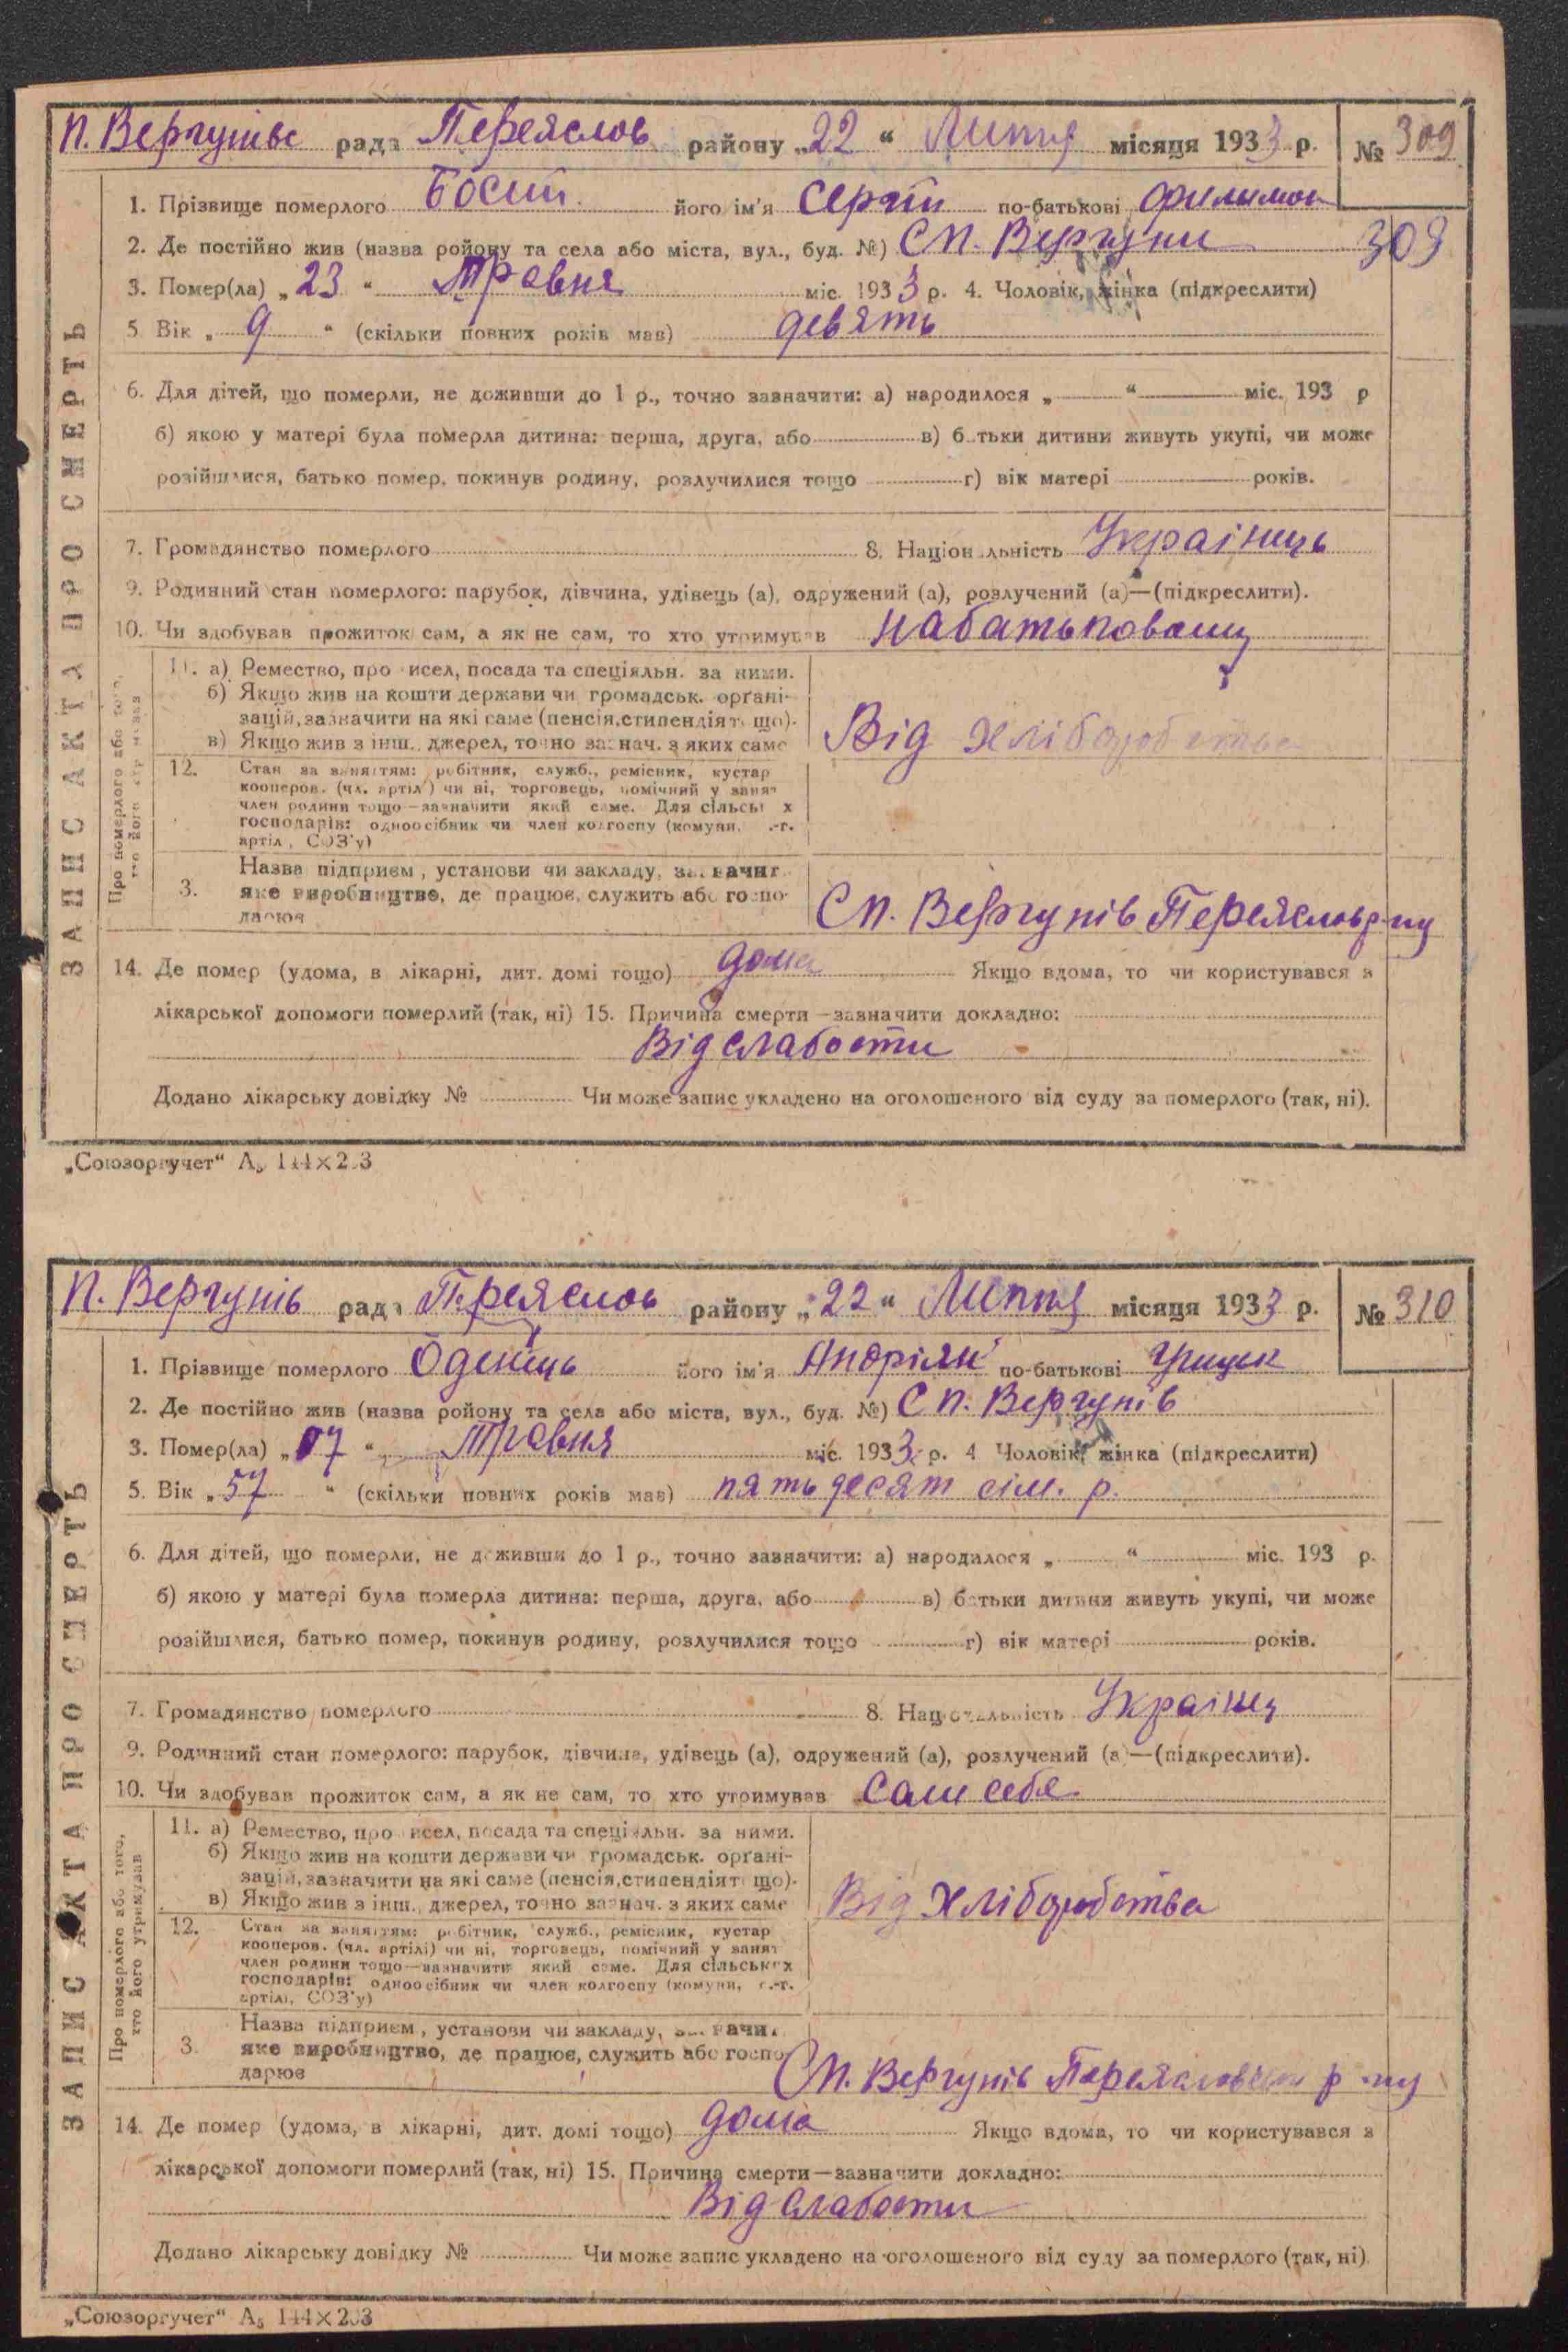 П. Вергунівс рада Переяслов району „22“ Липня місяця 1933 р. № 309
1. Прізвище померлого його ім'я Сергій по-батькові Филимон
2. Де постійно жив (назва ройону та села або міста, вул., буд. №) СП. Вергуни 309
3. Помер(ла) „23“ Травня міс. 1933 р. 4. Чоловік, жінка (підкреслити)
5. Вік „9“ (скільки повних років мав) девять
6. Для дітей, що померли, не доживши до 1 р., точно зазначити: а) народилося „ “ міс. 193 р
б) якою у матері була померла дитина: перша, друга, або в) б тьки дитини живуть укупі, чи може
розійшлися, батько помер, покинув родину, розлучилися тощо г) вік матері років.
7. Громадянство померлого 8. Націон льність Украінець
9. Родинний стан померлого: парубок, дівчина, удівець (а), одружений (а), розлучений (а)—(підкреслити).
10. Чи здобував прожиток сам, а як не сам, то хто утримував
11. а) Ремество, про исел, посада та спеціяльн. за ними.
б) Якщо жив на кошти держави чи громадськ. орґані-
зацій, зазначити на які саме (пенсія, стипендія т що).
в) Якщо жив з інш. джерел, точно зазнач. з яких саме
Від хліборобства
12. Стан за заняттям: робітник, служб., ремісник, кустар
кооперов. (чл. артіл ) чи ні, торговець, помічний у занят
член родини тощо—зазначити який саме. Для сільськ х
господарів: одноосібник чи член колгоспу (комуни, .-г.
артіл , СОЗ'у)
Назва підприєм , установи чи закладу, за начит
3. яке виробництво, де працює, служить або госпо-
дарює
СП. Вергунів Переясловр-ну
14. Де помер (удома, в лікарні, дит. домі тощо) дома Якщо вдома, то чи користувався з
лікарської допомоги померлий (так, ні) 15. Причина смерти—зазначити докладно:
Від слабости
Додано лікарську довідку № Чи може запис укладено на оголошеного від суду за померлого (так, ні).
ЗАПИС АКТА ПРО СМЕРТЬ
Про померлого або того,
хто його утримував
„Союзоргучет“ А₅ 144×203
П. Вергунів рада Переяслов району „22“ Липня місяця 1933 р. № 310
1. Прізвище померлого Оденець його ім'я Андріян по-батькові Грицьк
2. Де постійно жив (назва ройону та села або міста, вул., буд. №) СП. Вергунів
3. Помер(ла) „07“ Травня міс. 1933 р. 4 Чоловік, жінка (підкреслити)
5. Вік „57“ (скільки повних років мав) пятьдесят сім. р.
6. Для дітей, що померли, не доживши до 1 р., точно зазначити: а) народилося „ “ міс. 193 р.
б) якою у матері була померла дитина: перша, друга, або в) батьки дитини живуть укупі, чи може
розійшлися, батько помер, покинув родину, розлучилися тощо г) вік матері років.
7. Громадянство померлого 8. Національність Украінец
9. Родинний стан померлого: парубок, дівчина, удівець (а), одружений (а), розлучений (а)—(підкреслити).
10. Чи здобував прожиток сам, а як не сам, то хто утримував Сам себя
11. а) Ремество, про исел, посада та спеціяльн. за ними.
б) Якщо жив на кошти держави чи громадськ. орґані-
зацій, зазначити на які саме (пенсія, стипендія т що).
в) Якщо жив з інш. джерел, точно зазнач. з яких саме
Від Хліборобства
12. Стан за заняттям: робітник, служб., ремісник, кустар
кооперов. (чл. артілі) чи ні, торговець, помічний у занят
член родини тощо—зазначити який саме. Для сільських
господарів: одноосібник чи член колгоспу (комуни, с.-г.
артілі, СОЗ'у)
Назва підприєм , установи чи закладу, за начит
3. яке виробництво, де працює, служить або госпо
дарює
СП. Вергунів Переясловськ р-ну
14. Де помер (удома, в лікарні, дит. домі тощо) дома Якщо вдома, то чи користувався з
лікарської допомоги померлий (так, ні) 15. Причина смерти—зазначити докладно:
Від слабости
Додано лікарську довідку № Чи може запис укладено на оголошеного від суду за померлого (так, ні)
ЗАПИС АКТА ПРО СМЕРТЬ
Про померлого або того,
хто його утримував
„Союзоргучет“ А₅ 144×203